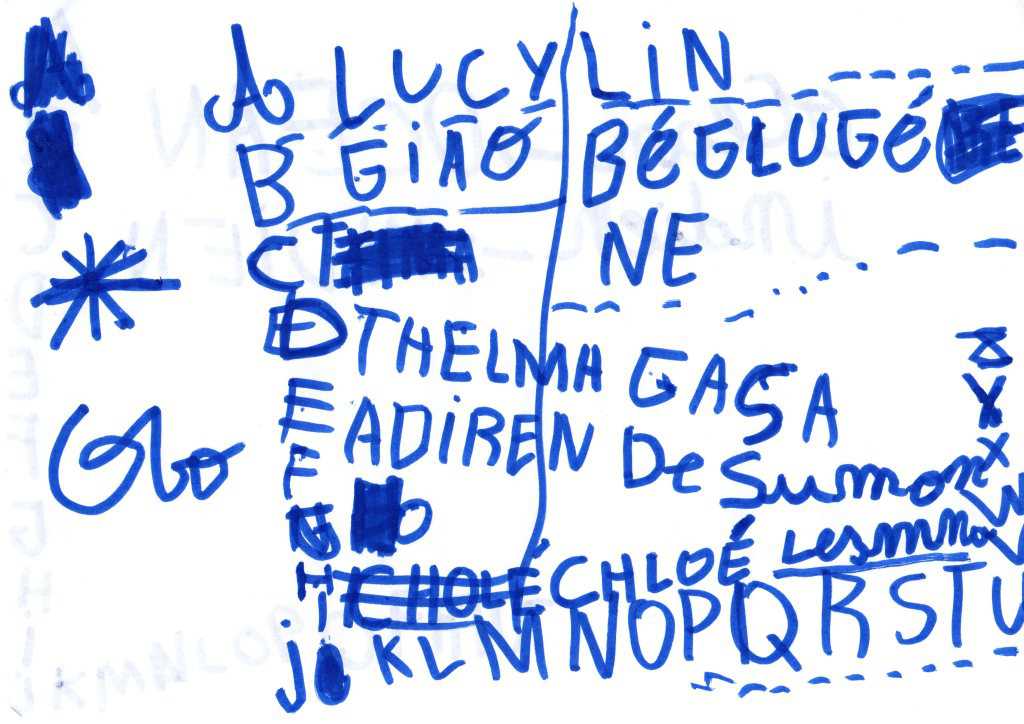 A LUCY LiN
B GiAO BéGLUGé
C NE
D THELMA GASA
E ADiREN De Sumon
F
H CHOLÉ CHLOÉ Lesmmo
i
j KLMNOPQRSTU